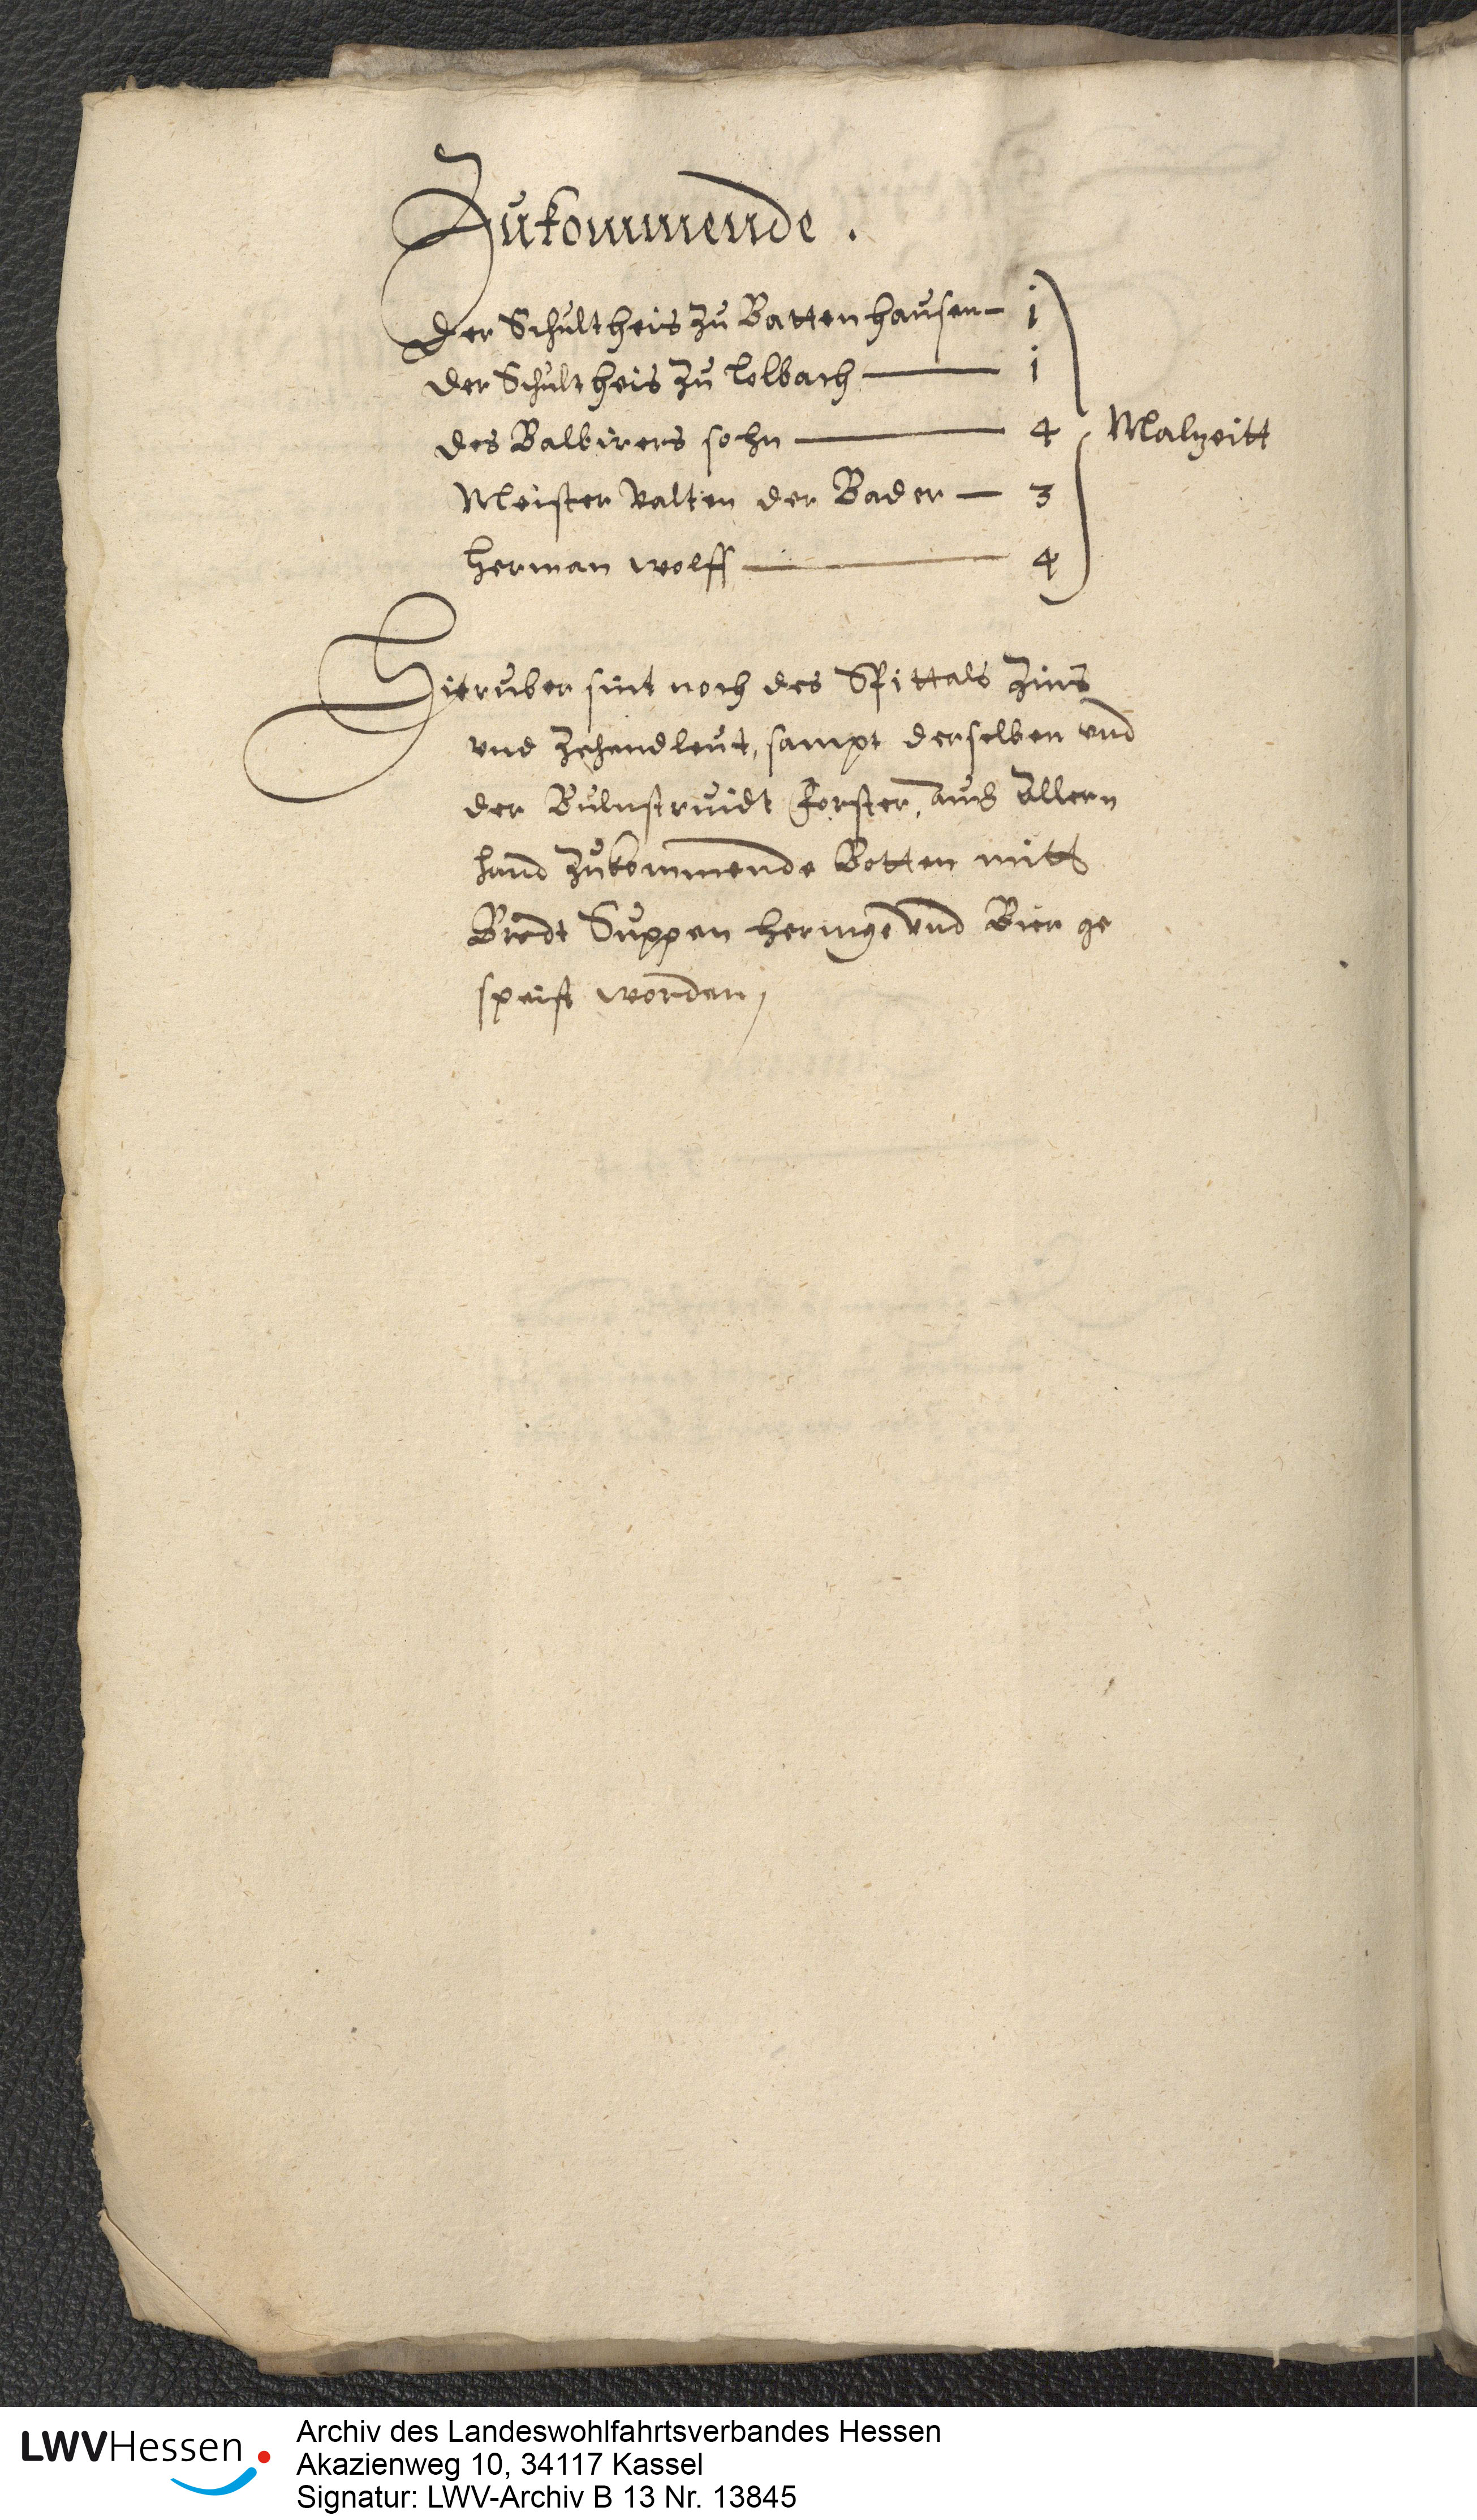 Zukommende.
Der Schultheis zu Battenhausen — 1
der Schultheis zu Lolbach — 1
des Balbirers sohn — 4 Malzeitt
Meister Valten der Bader — 3
Herman Wolff — 4
Hieruber sint noch des Spittals Zins
vnd Zehendleut, sampt derselben vnd
der forster, auch allern
hand zukommende Botten mitt
Brodt Suppen Heringe vnd Bier ge
speist worden,
LWVHessen
Archiv des Landeswohlfahrtsverbandes Hessen
Akazienweg 10, 34117 Kassel
Signatur: LWV-Archiv B 13 Nr. 13845